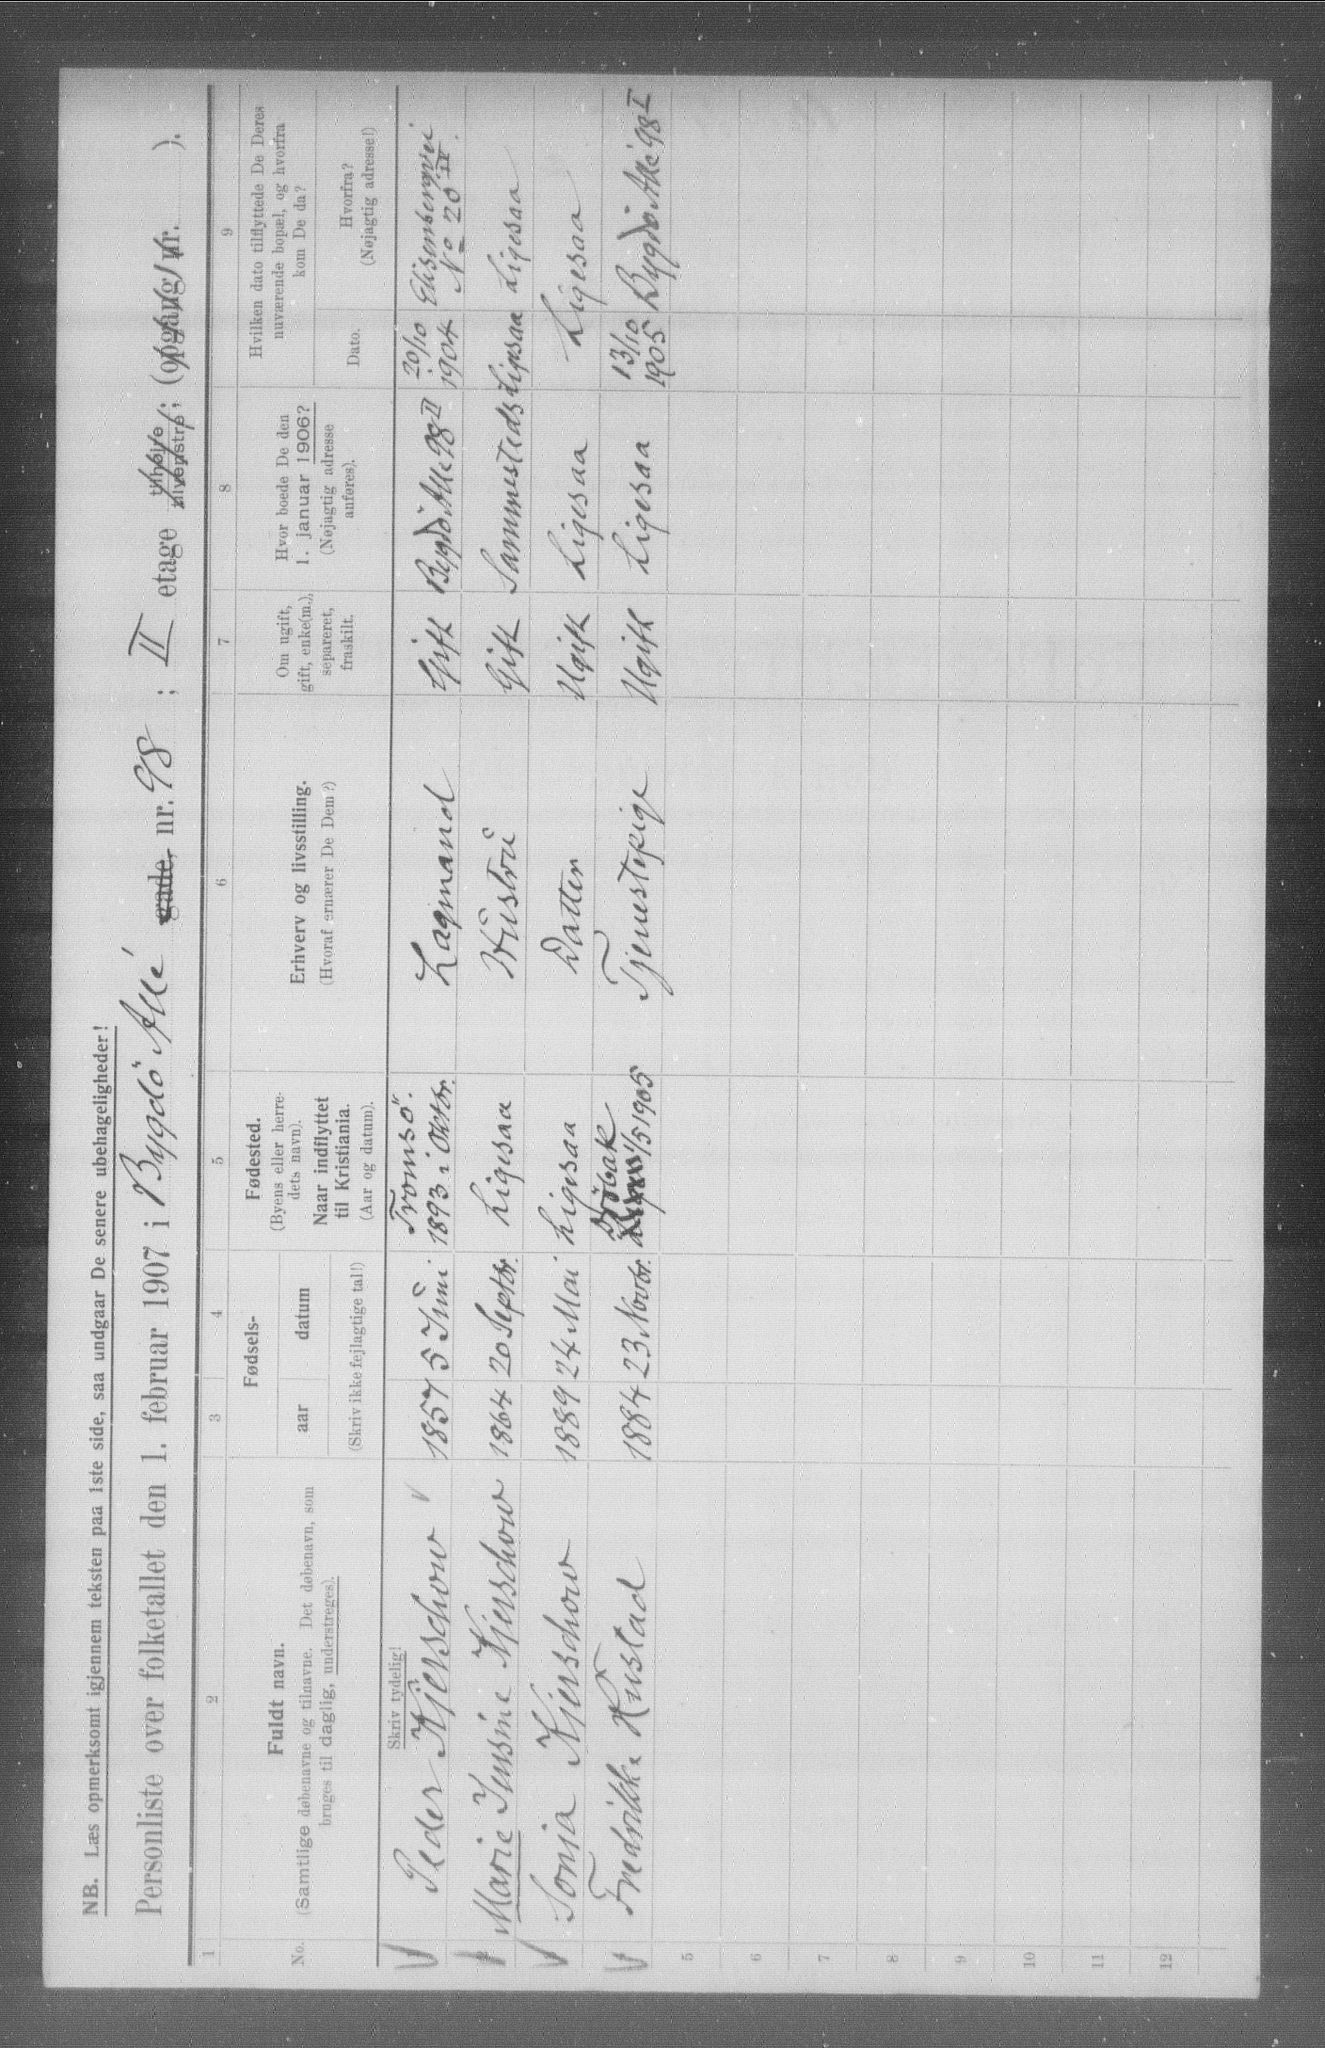 NB. Læs opmerksomt igjennem teksten paa 1ste side, saa undgaar De senere ubehageligheder!
Personliste over folketallet den 1. februar 1907 i Bygdö Allé gade, nr. 98 ; II etage tilhøjre tilvenstre; (opgang nr. ).
1 2 3 4 5 6 7 8 9
No.
Fuldt navn.
(Samtlige døbenavne og tilnavne. Det døbenavn, som
bruges til daglig, understreges).
Fødsels-
aar datum
(Skriv ikke fejlagtige tal!)
Fødested.
(Byens eller herre-
dets navn).
Naar indflyttet
til Kristiania.
(Aar og datum).
Erhverv og livsstilling.
(Hvoraf ernærer De Dem?)
Om ugift,
gift, enke(m.),
separeret,
fraskilt.
Hvor boede De den
1. januar 1906?
(Nøjagtig adresse
anføres).
Hvilken dato tilflyttede De Deres
nuværende bopæl, og hvorfra
kom De da?
Dato.
Hvorfra?
(Nøjagtig adresse!)
Skriv tydelig!
Peder Kjerschow 1857 5 Juni Tromsö. 1893 i Oktbr. Lagmand Gift Bygdö Allé 98 II 20/10 1904 Elisenbergvei No 20 IV
Marie Jensine Kjerschow 1864 20 Septbr. Ligesaa Hustru Gift Sammesteds Ligesaa Ligesaa
Sonja Kjerschow 1889 24 Mai Ligesaa Datter Ugift Ligesaa Ligesaa
Fredrikke Hustad 1884 23 Novbr. Dröbak 1/5 1905 Tjenestepige Ugift Ligesaa 13/10 1905 Bygdö Allé 98 I
5
6
7
8
9
10
11
12